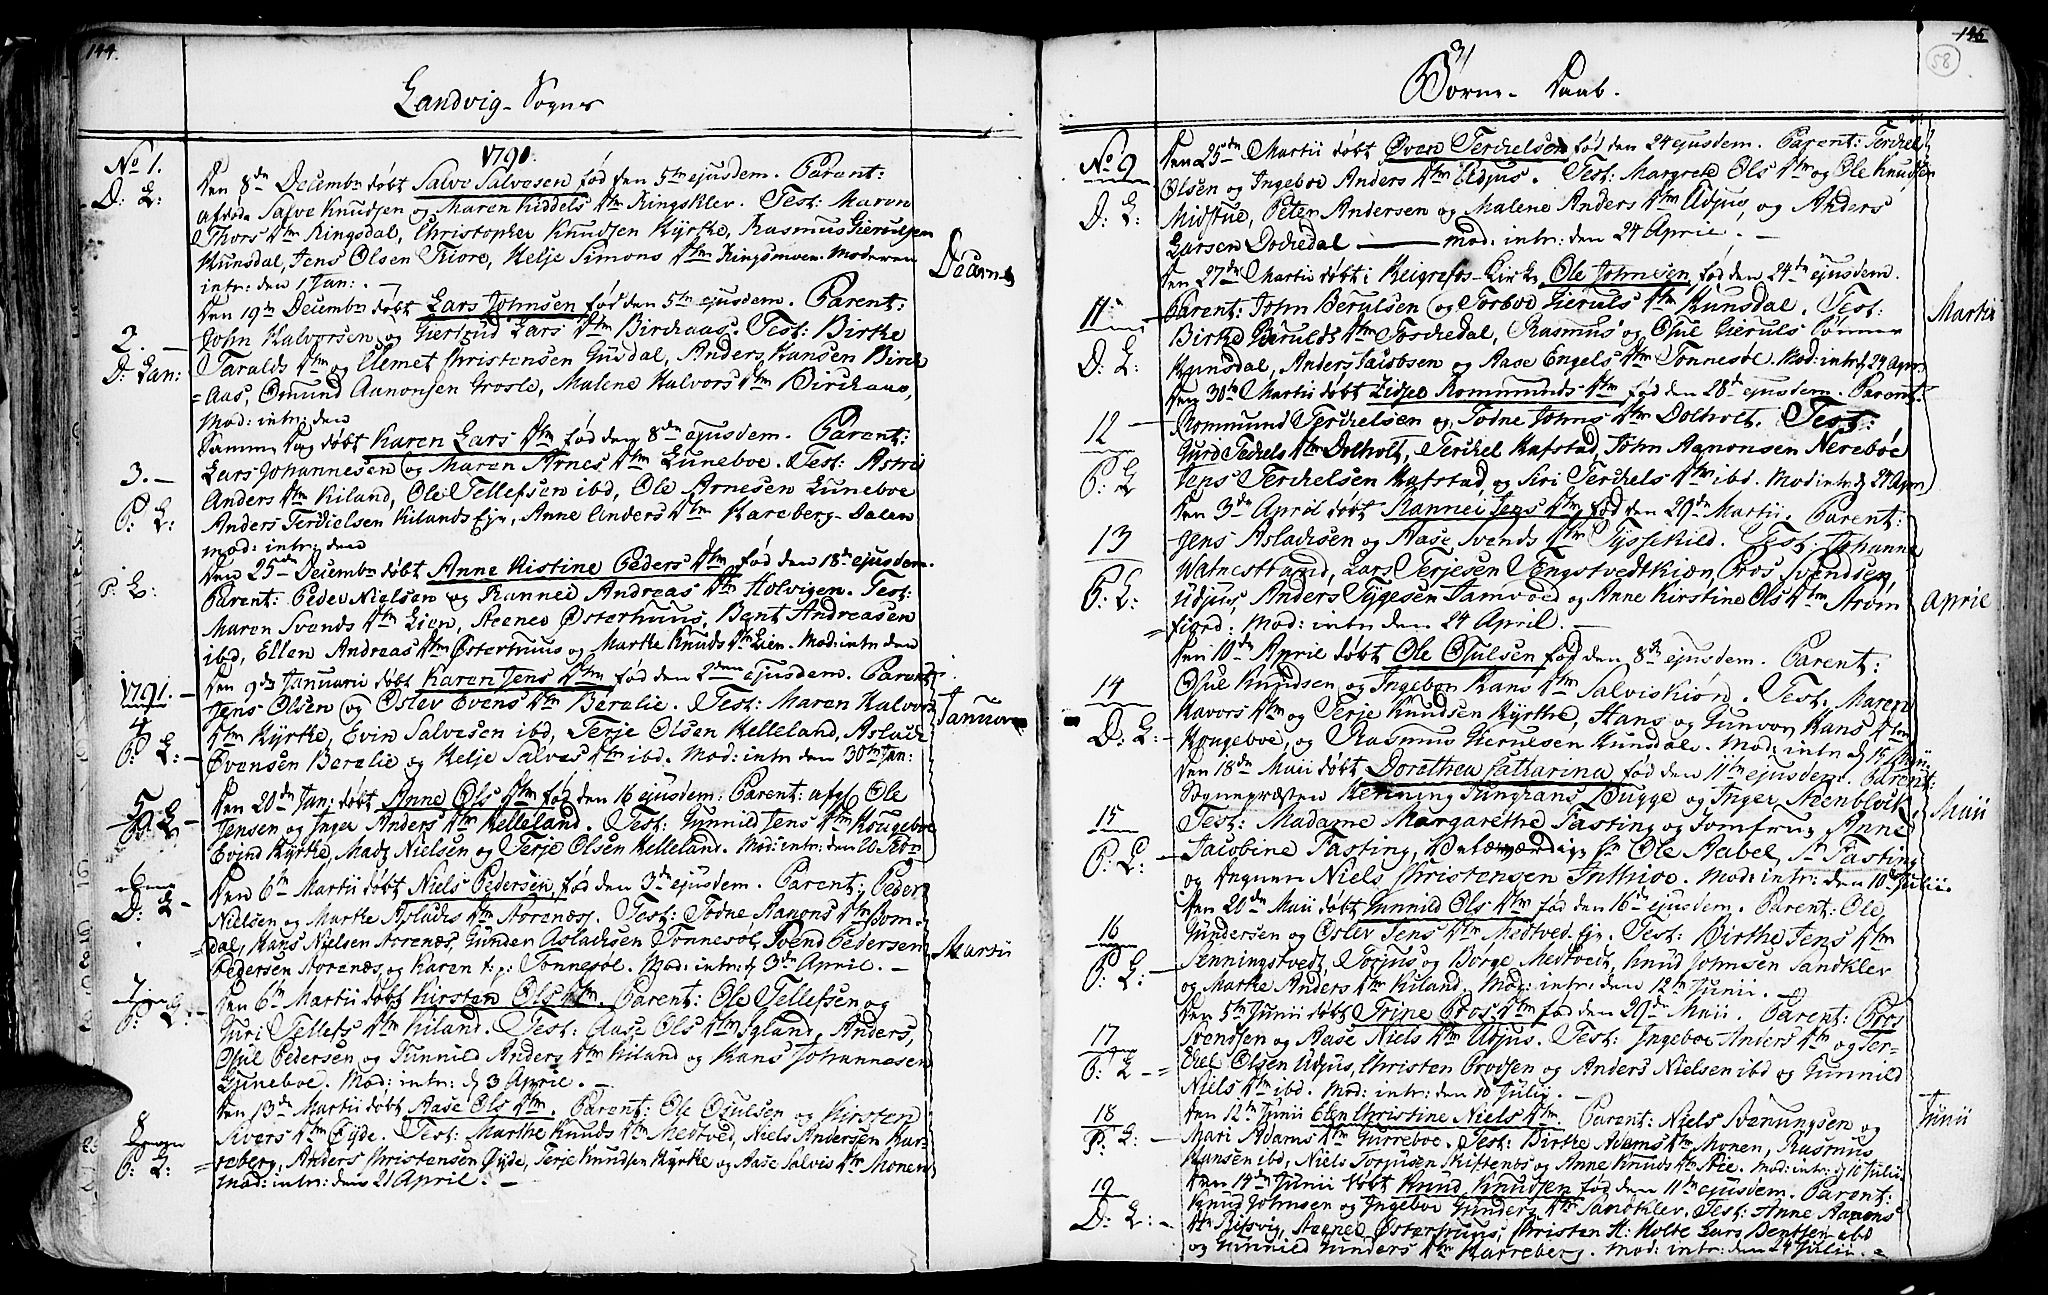 144.
Landvig - Sogns
1790.
No 1.
D: L:
Den 8de Decembr døbt Salve Salvesen fød den 5te ejusdem. Parent:
afdøde Salve Knudsen og Maren Kiddels Dtm Ringsklev. Test: Maren
Thors Dtm Ringsdal, Christopher Knudsen Kyrke, Rasmus Gierulsen
Hunsdal, Jens Olsen Fiore, Helje Simons Dtm Ringsmoen. Moderen
intr: den 1 Jan: . -
Decembr
2. -
D: Lan:
Den 19de Decembr døbt Lars Johnsen fød den 5te ejusdem. Parent:
John Halvorsen og Giertrud Lars Dtm Birkeaas. Test: Birthe
Taralds Dtm og Elemet Christensen Gusdal, Anders Hansen Birke
= Aas, Omund Aanonsen Grosle, Malene Halvors Dtm Birkeaas,
Mod: intr: den
3. -
P: L:
Samme Dag døbt Karen Lars Dtm fød den 8de ejusdem. Parent:
Lars Johannesen og Maren Arnes Dtm Luneboe. Test: Astri
Anders Dtm Kiland, Ole Tellefsen ibd, Ole Arnesen Luneboe
Anders Terkielsen Kilands Eje, Anne Anders Dtm Hareberg-Dalen
mod: intr: den
P: L:
Den 25de Decembr døbt Anne Kistine Peders Dtm fød den 18de ejusdem.
Parent: Peder Nielsen og Rannei Andreas Dtm Holvigen. Test:
Maren Svends Dtm Lien, Aanen Østerhuus, Bent Andreasen
ibd, Ellen Andreas Dtm Østerhuus og Marthe Knuds Dtm Lien. Mod: intr den
1791. -
4
P: L: -
Den 9de Januarii døbt Karen Jens Dtm fød den 2den ejusdem. Parent:
Jens Olsen og Oslev Evens Dtm Beralie. Test: Maren Halvors
Dtm Kyrke, Evin Salvesen ibd, Terje Olsen Kelleland, Aslack
Evensen Beralie og Helje Salves Dtm ibd. Mod: intr den 30te Jan:
Januar
5
P: L
Den 20de Jan: døbt Anne Ols Dtm fød den 16 ejusdem. Parent: afgl Ole
Jensen og Inger Anders Dtm Kelleland. Test: Gunnild Jens Dtm Kougeboe
Evind Kyrke, Madz Nielsen og Terje Olsen Kelleland. Mod: intr: den 20 Febr
6
D: L -
Den 6te Martii døbt Niels Pedersen, fød den 3de ejusdem. Parent: Peder
Nielsen og Marthe Asladis Dtm Aorenæs. Test: Todne Hanons Dtm Dom-
= dal, Hans Nielsen Aorenæs, Gunder Asladisen Tonnesøl, Svend Pedersen
Pedersen Aorenæs og Karen t: p: Tonnesøl. Mod: intr: d 3de April. -
Martii
7
P: L: -
Den 6te Martii døbt Kirsten Ols Dtm. Parent: Ole Tellefsen og
Guri Tellefs Dtm Kiland. Test: Aase Ols Dtm Igland, Anders,
Osul Pedersen og Gunnild Anders Dtm Kiland og Hans Johannesen
Luneboe. Mod: intr: d 3 April. -
8
P: L:
Den 13de Martii døbt Aase Ols Dtm. Parent: Ole Osulsen og Kirsten
Sivers Dtm Øyde. Test: Marthe Knuds Dtm Medtved, Niels Andersen Har-
= reberg, Anders Christensen Øyde, Terje Knudsen Kyrke og Aase Salvis Dtm Monen
Mod: intr: den 21 April. -
145
58
31
Børne - Daab.
No 9
D: L:
Den 25de Martii døbt Øven Terkelsen fød den 24 ejusdem. Parent: Terkel
Olsen og Ingeboe Anders Dtm Udjus. Test: Margrete Ols Dtm og Ole Knudsen
Midstue, Peter Andersen og Malene Anders Dtm Udjus, og Anders
Larsen Dokedal — mod: intr: den 24 April. -
11
D: L:
Den 27de Martii døbt i Heigrefos-Kirke Ole Johnsen fød den 24de ejusdem.
Parent: John Berulsen og Torboe Gieruls Dtm Hunsdal. Test:
Birthe Gierulds Dtm Joskedal, Rasmus og Osul Gieruls Sønner
Hunsdal, Anders Jacobsen og Aase Engels Dtm Tonnesøl. Mod: intr d 24 Apr
Martii
12 -
P: L
Den 30te Martii døbt Lidsel Rommunds Dtm fød den 28de ejusdem. Parent:
Rommund Terkelsen og Todne Johns Dtm Dolholt. Test:
Gurd Tedkels Dtm Dolholt, Terkel Hafstad, John Aanonsen Nereboe
Jens Terkelsen Hafstad, og Siri Terkels Dtm ibd. Mod intr d 24 Apr
13
P: L:
Den 3de April døbt Rannei Jens Dtm fød den 29de Martii. Parent:
Jens Asladsen og Aase Svends Dtm Tysskild. Test: Johanne
Watnestrand, Lars Terjesen Tengstvedtkiøn, Bros Svendsen,
Udjus, Anders Tygesen Tamvoed og Anne Kirstine Ols Dtm Strøm
= fiord. Mod: intr den 24 April. -
April
14
D: L: -
Den 10de April døbt Ole Osulsen fød den 8de ejusdem. Parent:
Osul Knudsen og Ingebor Hans Dtm Salviskiøn. Test: Maren
Havors Dtm og Terje Knudsen Kyrke, Hans og Gunvor Hans Dtm
Kougeboe, og Rasmus Gierulsen Hunsdal. Mod: intr d 15 Maii
15
P: L: -
Den 18de Maii døbt Dorothea Catharina fød den 11te ejusdem. Parent:
Sognepræsten Henning Junghans Bugge og Inger Steenblock
Test: Madame Margarethe Fasting og Jomfrue Anne
Jacobine Fasting, Velærværdige hr Ole Aabel, Sr Fasting
og Degnen Niels Christensen Inthioe. Mod: intr: den 10de Julii.
Maii
16
P: L: -
Den 20de Maii døbt Gunnild Ols Dtm fød den 16de ejusdem. Parent: Ole
Gundersen og Oslev Jens Dtm Medtved Eje. Test: Birthe Jens Dtm
Tenningstvedt, Torjus og Borge Medtvedt, Knud Johnsen Sandklev
og Marthe Anders Dtm Kiland. Mod: intr: den 12te Junii. -
17
P: L -
Den 5te Junii døbt Trine Bros Dtm fød den 29de Maii. Parent: Bros
Svendsen og Aase Niels Dtm Udjus. Test: Ingeboe Anders Dtm og Ter-
= kel Olsen Udjus, Christen Brodsen og Anders Nielsen ibd og Gunnild
Niels Dtm ibd. Mod: intr: den 10 Julii. -
18
P: L: -
Den 12te Junii Elen Christine Niels Dtm Parent: Niels Svenungsen og
Mari Adams Dtm Gurreboe. Test: Birthe Adams Dtm Monen, Rasmus
Hansen ibd, Niels Torjusen Skiftenes og Anne Knuds Dtm Stie. Mod: intr: d 10 Julii
Junii
19
D: L: -
Den 14de Junii døbt Knud Knudsen fød den 11te ejusdem. Parent:
Knud Johnsen og Ingeboe Gunders Dtm Sandklev. Test: Anne Aanons
Dtm Risvig, Aanen Østerhuus, Christen H: Holte Lars Bentsen ibd
og Gunnild Gunders Dtm Harreberg. Mod: intr: den 24 Julii. -